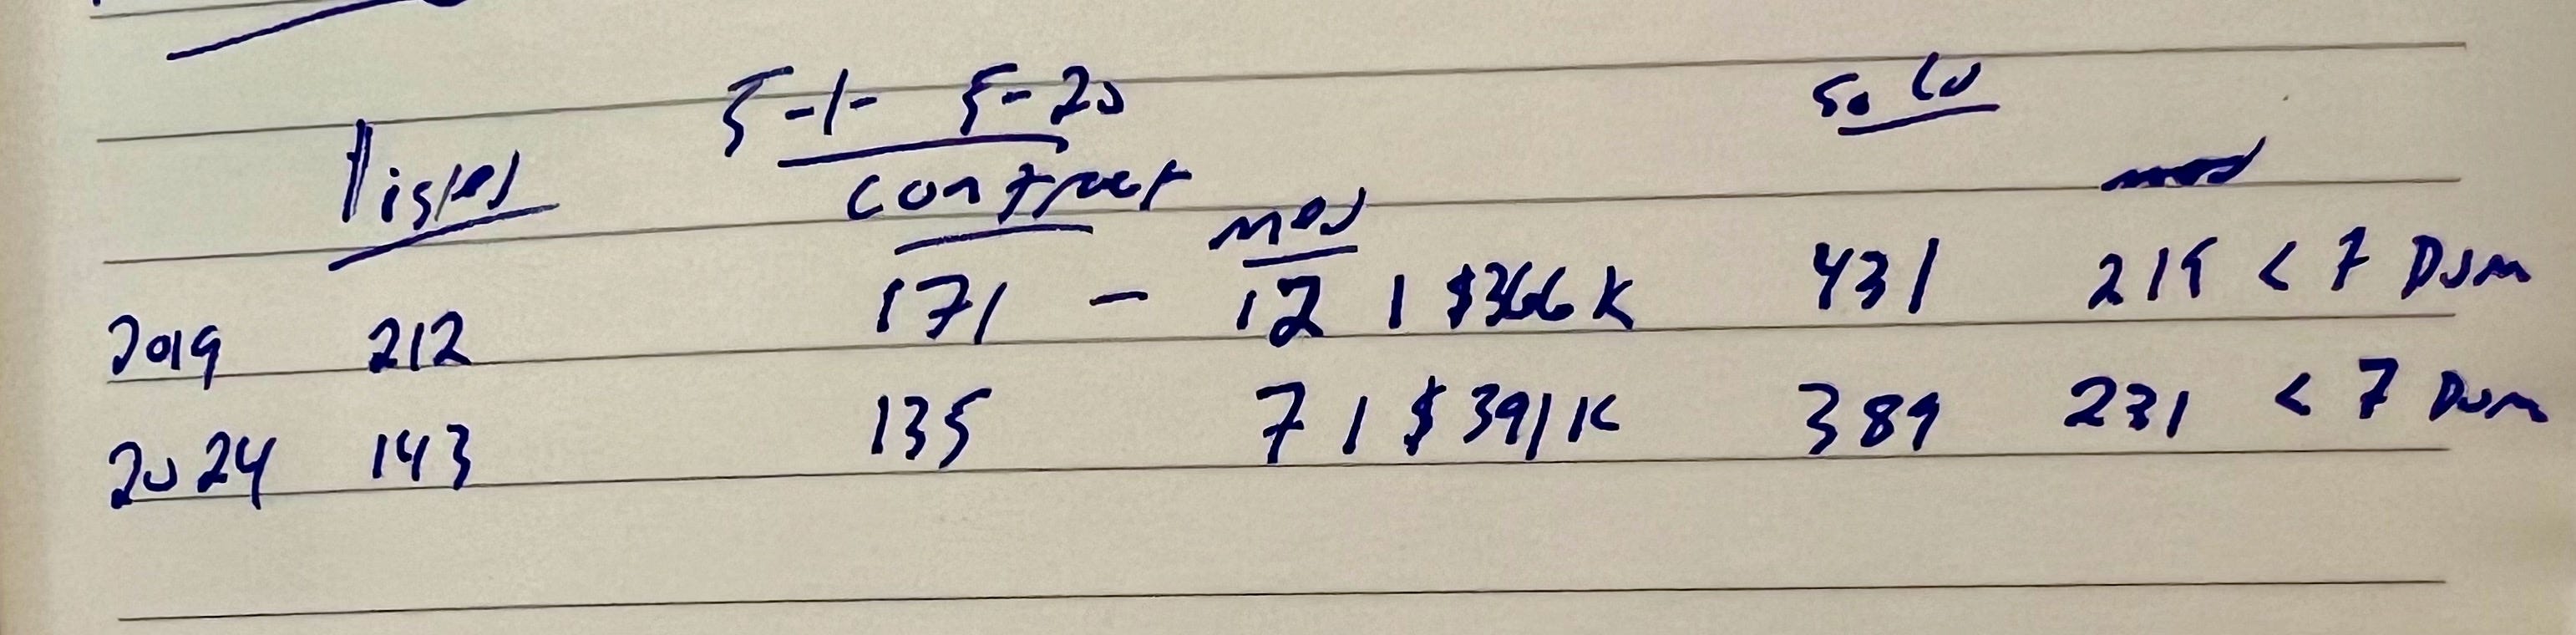 5-1- 5-20 sold
listed contract med med
2019 212 171 - 12 | $366K 431 219 < 7 Dom
2024 143 135 7 | $391K 389 231 < 7 Dom